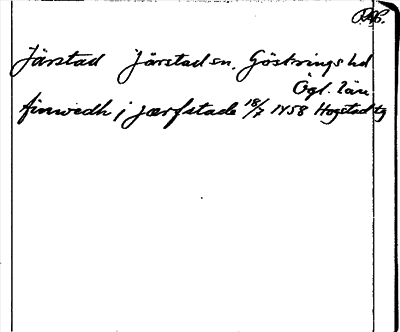 Järstad Järstad sn. Göstrings hd
Ögl. län.
finwedh j jærfstade 18/7 1458 Hogstad tg